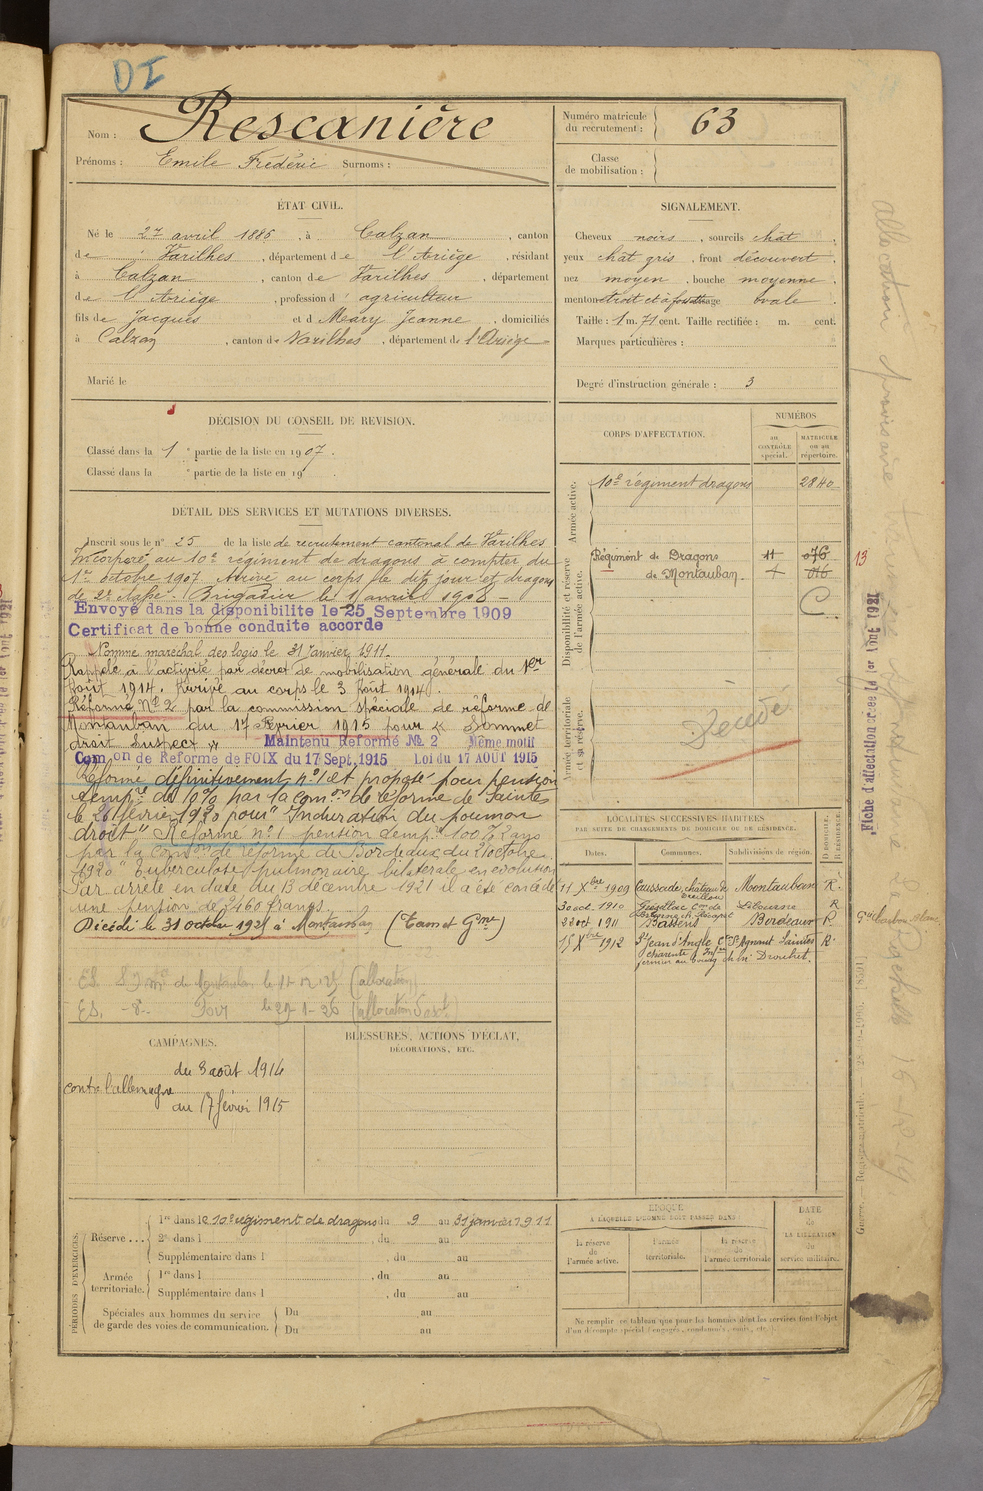 DI
Nom : Rescanière
Prénoms : Emile Frédéric Surnoms :
Numéro matricule du recrutement : 63
Classe de mobilisation :
ÉTAT CIVIL.
Né le 27 avril 1886, à Calzan, canton
de Varilhes, département de l'Ariège, résidant
à Calzan, canton de Varilhes, département
de l'Ariège, profession d'agriculteur
fils de Jacques et d Mary Jeanne, domiciliés
à Calzan, canton de Varilhes, département de l'Ariège
Marié le
SIGNALEMENT.
Cheveux noirs, sourcils chât
yeux chât gris, front découvert
nez moyen, bouche moyenne
menton étroit et à fossette visage ovale
Taille : 1 m. 71 cent. Taille rectifiée : m. cent.
Marques particulières :
Degré d'instruction générale : 3
DÉCISION DU CONSEIL DE REVISION.
Classé dans la 1e partie de la liste en 1907.
Classé dans la e partie de la liste en 19
DÉTAIL DES SERVICES ET MUTATIONS DIVERSES.
Inscrit sous le n° 25 de la liste de recrutement cantonal de Varilhes
Incorporé au 10e régiment de dragons à compter du
1er octobre 1907. Arrivé au corps le dit jour et dragon
de 2e classe. Brigadier le 11 avril 1908 -
Envoyé dans la disponibilité le 25 Septembre 1909
Certificat de bonne conduite accordé
Nommé maréchal des logis le 31 Janvier 1911.
Rappelé à l'activité par décret de mobilisation générale du 1er
Août 1914. Arrivé au corps le 3 Août 1914.
Réformé N° 2 par la commission spéciale de réforme de
Montauban du 17 Février 1915 pour « Sommet
droit suspect » Maintenu Réformé № 2 Même motif
Comon de Réforme de FOIX du 17 Sept. 1915 Loi du 17 AOUT 1915
Réformé définitivement n° 1 et proposé pour pension
tempre de 10% par la comon de réforme de Saintes
le 26 février 1920 pour "Induration du poumon
droit" Réformé n° 1 pension temp. 100% 2 ans
par la comon de réforme de Bordeaux du 21 octobre
1920 "Tuberculose pulmonaire bilatérale en évolution
Par arrêté en date du 13 décembre 1921 il a été concédé
une pension de 2460 francs
Décédé le 31 octobre 1925 à Montauban (Tarn et Gne)
(allocation)
ES. -8- Foix le 29-1-26 (allocation
CORPS D'AFFECTATION.
NUMÉROS
au CONTRÔLE spécial.
MATRICULE ou au répertoire.
Armée active.
10e régiment dragons 2840
Disponibilité et réserve de l'armée active.
Régiment de Dragons 11 076 13
de Montauban. 016
C
Armée territoriale et sa réserve.
Décédé
LOCALITÉS SUCCESSIVES HABITÉES
PAR SUITE DE CHANGEMENTS DE DOMICILE OU DE RÉSIDENCE.
Dates. Communes. Subdivisions de région. D. DOMICILE. R. RÉSIDENCE.
11 Xbre 1909 Caussade, château de Montauban R.
30 oct. 1910 Libourne R
22 oct 1911 Bassens Bordeaux R.
15 Xbre 1912 St Jean d'Angle Cn St Agnant Saintes R.
Charente Infre
fermier au bourg de Mr Drouhet.
CAMPAGNES.
contre l'allemagne
du 3 août 1914
au 17 février 1915
BLESSURES, ACTIONS D'ÉCLAT,
DÉCORATIONS, ETC.
PÉRIODES D'EXERCICES.
Réserve... 1re dans le 10e régiment de dragons du 9 au 31 janvier 1911
2e dans l , du au
Supplémentaire dans l , du au
Armée territoriale. 1re dans l , du au
Supplémentaire dans l , du au
Spéciales aux hommes du service Du au
de garde des voies de communication. Du au
EPOQUE
À LAQUELLE L'HOMME DOIT PASSER DANS :
la réserve de l'armée active. l'armée territoriale. la réserve de l'armée territoriale
DATE de LA LIBÉRATION du service militaire.
Ne remplir ce tableau que pour les hommes dont les services font l'objet
d'un décompte spécial (engagés, condamnés, omis, etc.).
Fiche d'affectation créée le 1er Août 1921
allocation provisoire